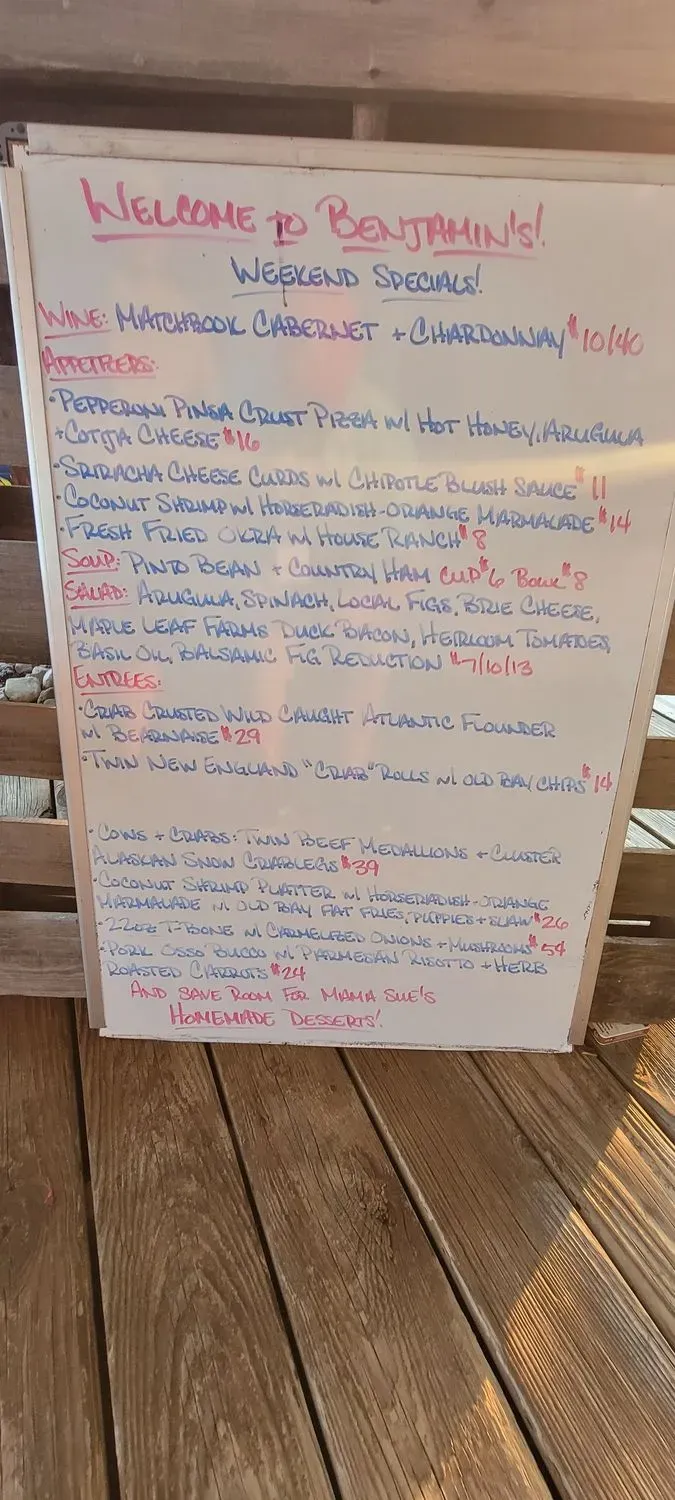 WELCOME TO BENJAMIN'S!
WEEKEND SPECIALS!
WINE: MATCHBOOK CABERNET + CHARDONNAY $10/40
APPETIZERS:
• PEPPERONI PINSA CRUST PIZZA W/ HOT HONEY, ARUGULA
+ COTIJA CHEESE $16
• SRIRACHA CHEESE CURDS W/ CHIPOTLE BLUSH SAUCE $11
• COCONUT SHRIMP W/ HORSERADISH-ORANGE MARMALADE $14
• FRESH FRIED OKRA W/ HOUSE RANCH $8
SOUP: PINTO BEAN + COUNTRY HAM CUP $6 BOWL $8
SALAD: ARUGULA, SPINACH, LOCAL FIGS, BRIE CHEESE,
MAPLE LEAF FARMS DUCK BACON, HEIRLOOM TOMATOES,
BASIL OIL, BALSAMIC FIG REDUCTION $7/10/13
ENTREES:
• CRAB CRUSTED WILD CAUGHT ATLANTIC FLOUNDER
W/ BEARNAISE $29
• TWIN NEW ENGLAND "CRAB" ROLLS W/ OLD BAY CHIPS $14
• COWS + CRABS: TWIN BEEF MEDALLIONS + CLUSTER
ALASKAN SNOW CRABLEGS $39
• COCONUT SHRIMP PLATTER W/ HORSERADISH-ORANGE
MARMALADE W/ OLD BAY FIAT FRIES, PUPPIES + SLAW $26
• 22OZ T-BONE W/ CARMELIZED ONIONS + MUSHROOMS $54
• PORK OSSO BUCCO W/ PARMESAN RISOTTO + HERB
ROASTED CARROTS $24
AND SAVE ROOM FOR MAMA SUE'S
HOMEMADE DESSERTS!